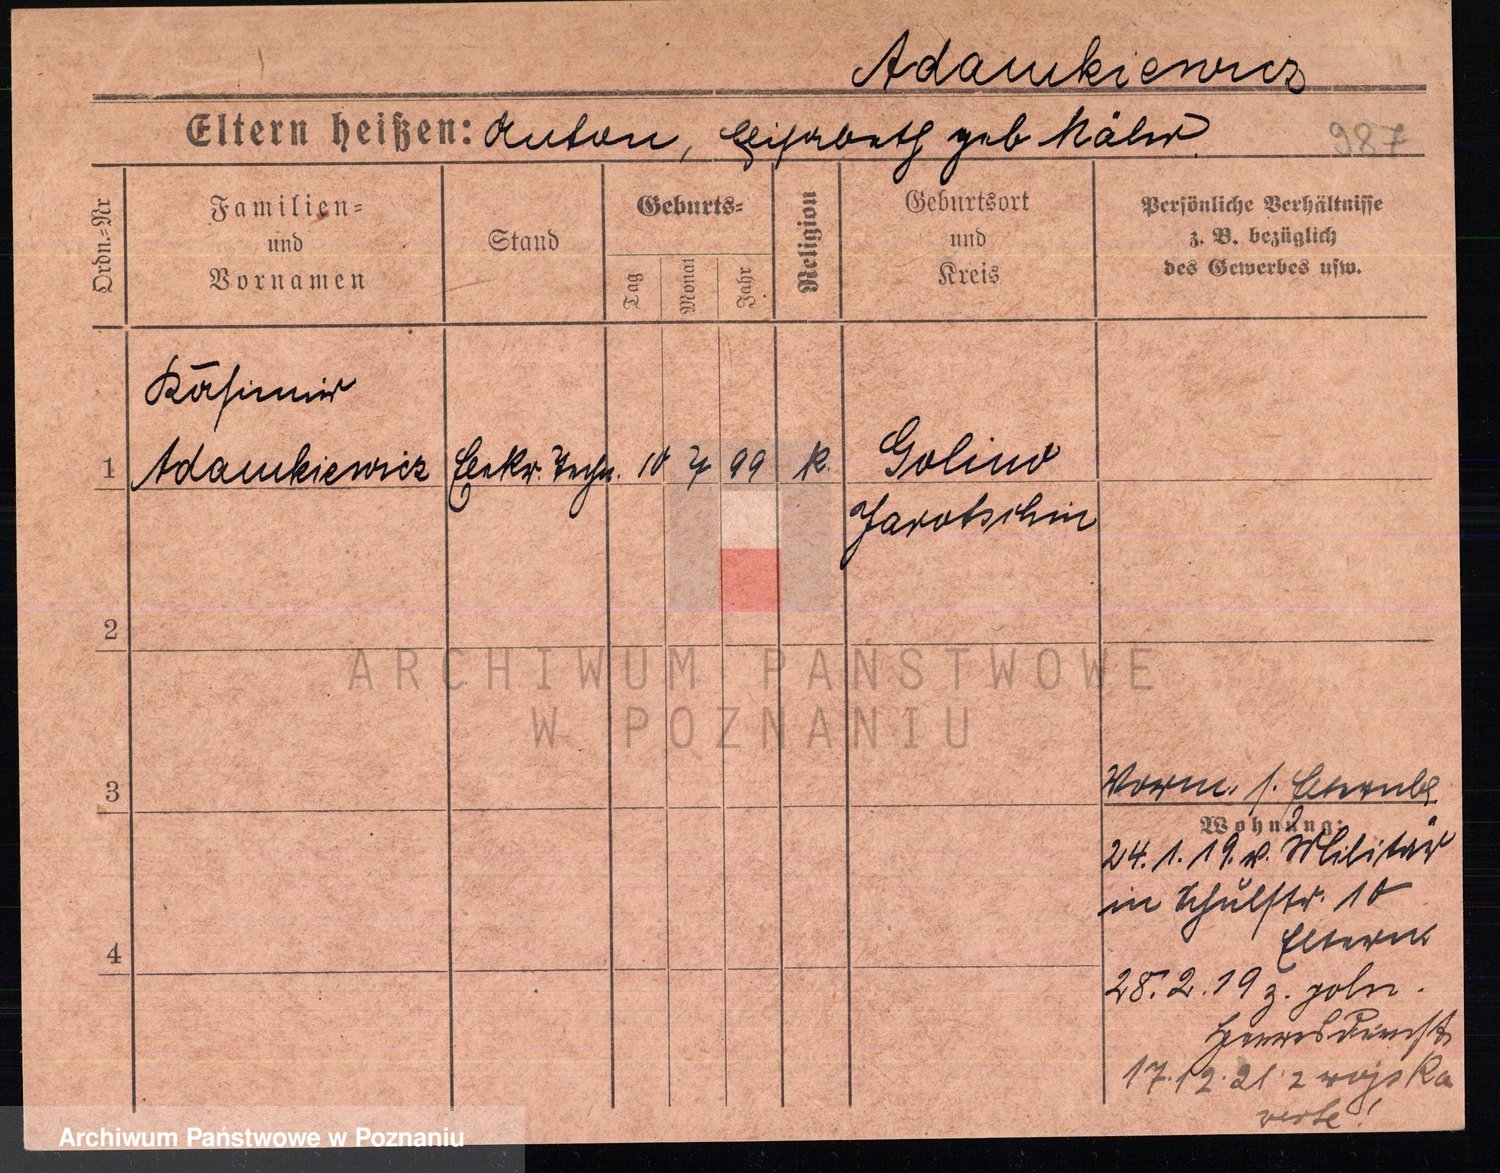 Adamkiewicz
Eltern heißen: Anton, Elisabeth geb Mähr
987
Ordn.-Nr
Familien-
und
Vornamen
Stand
Geburts-
Tag
Monat
Jahr
Religion
Geburtsort
und
Kreis
Persönliche Verhältnisse
z. B. bezüglich
des Gewerbes usw.
Kasimir
1 Adamkiewicz Elektr. Techn. 10 7 99 k. Golina
Jarotschin
2
3
Vorm. s. Elternbl
Wohnung:
24.1.19. v. Militär
in Schulstr. 10
Eltern
4
28.2.19 z. poln.
Heeresdienst
17.12.21 z wojska
verte!
ARCHIWUM PAŃSTWOWE
W POZNANIU
Archiwum Państwowe w Poznaniu